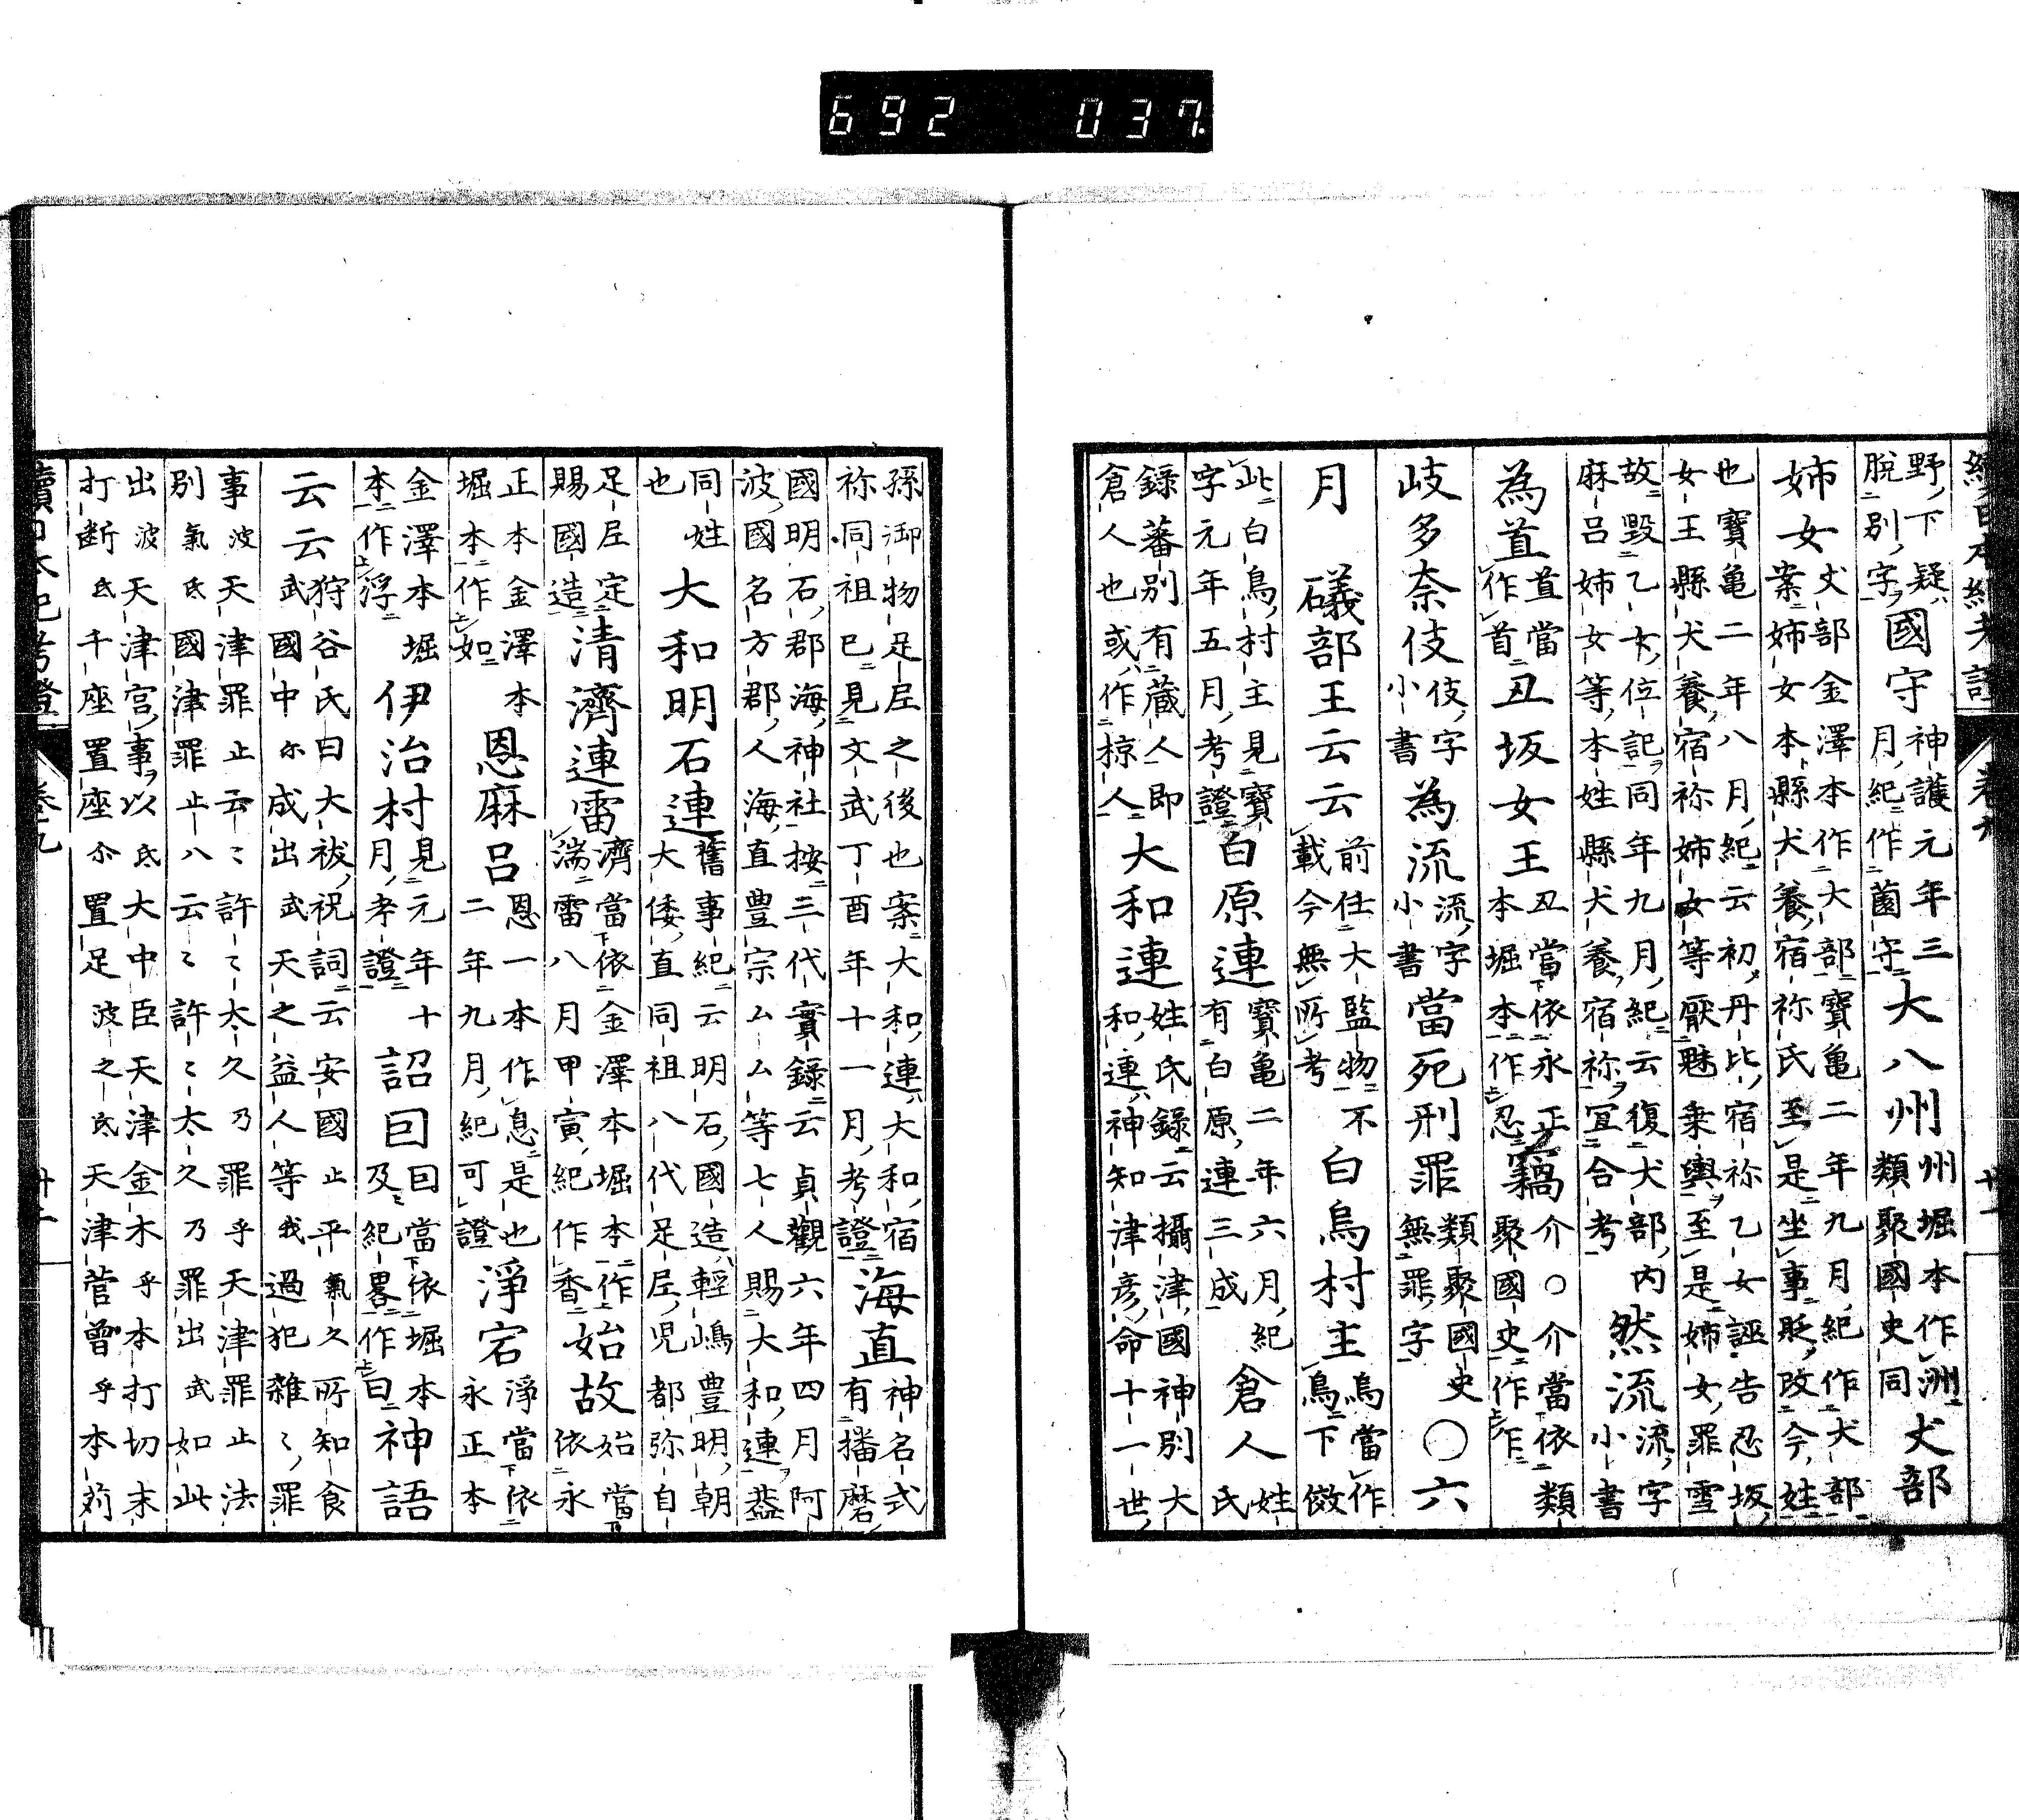 續日本紀考證 卷九 廿一
野下疑
脫別字
國守
神護元年三
月紀作薗守
大八州
州堀本作洲
類聚國史同
犬部
姉女
丈部金澤本作大部寶亀二年九月紀作犬部
案姉女本縣犬養宿祢氏至是坐事貶改今姓
也寶亀二年八月紀云初丹比宿祢乙女誣告忍坂
女王縣犬養宿祢姉女等厭魅乗輿至是姉女罪雪
故毀乙女位記同年九月紀云復犬部内
麻呂姉女等本姓縣犬養宿祢宜合考
然流
流字
小書
為直
直當
作首
丑坂女王
丑當依永正
本堀本作忍
竊
介○介當依類
聚國史作乍
岐多奈伎
伎字
小書
為流
流字
小書
當死刑罪
類聚國史
無罪字
○六
月 礒部王云云
前任大監物不
載今無所考
白烏村主
烏當作
鳥下傚
此白鳥村主見寶
字元年五月考證
白原連
寶亀二年六月紀
有白原連三成
倉人
姓
氏
錄蕃別有蔵人即
倉人也或作椋人
大和連
姓氏錄云攝津國神別大
和連神知津彦命十一世
孫御物足尼之後也案大和連大和宿
祢同祖已見文武丁酉年十一月考證
海直
神名式
有播磨
國明石郡海神社按三代實錄云貞觀六年四月阿
波國名方郡人海直豊宗ムム等七人賜大和連蓋
同姓
也
大和明石連
舊事紀云明石國造輕嶋豊明朝
大倭直同祖八代足尼児都弥自
足尼定
賜國造
清濟連雷
濟當依金澤本堀本作
湍雷八月甲寅紀作香
始故
始當
依永
正本金澤本
堀本作如
恩麻呂
恩一本作息是也
二年九月紀可證
淨宕
淨當依
永正本
金澤本堀
本作浮
伊治村
見元年十
月考證
詔曰
曰當依堀本
及紀畧作曰
神語
云云
狩谷氏曰大祓祝詞云安國止平氣久所知食
武國中尓成出武天之益人等我過犯雜〻罪
事波天津罪止云〻許〻太久乃罪乎天津罪止法
別氣氐國津罪止八云〻許〻太久乃罪出武如此
出波天津宮事以氐大中臣天津金木乎本打切末
打断氐千座置座尓置足波之氐天津菅曽乎本苅
續日本紀考證 卷九